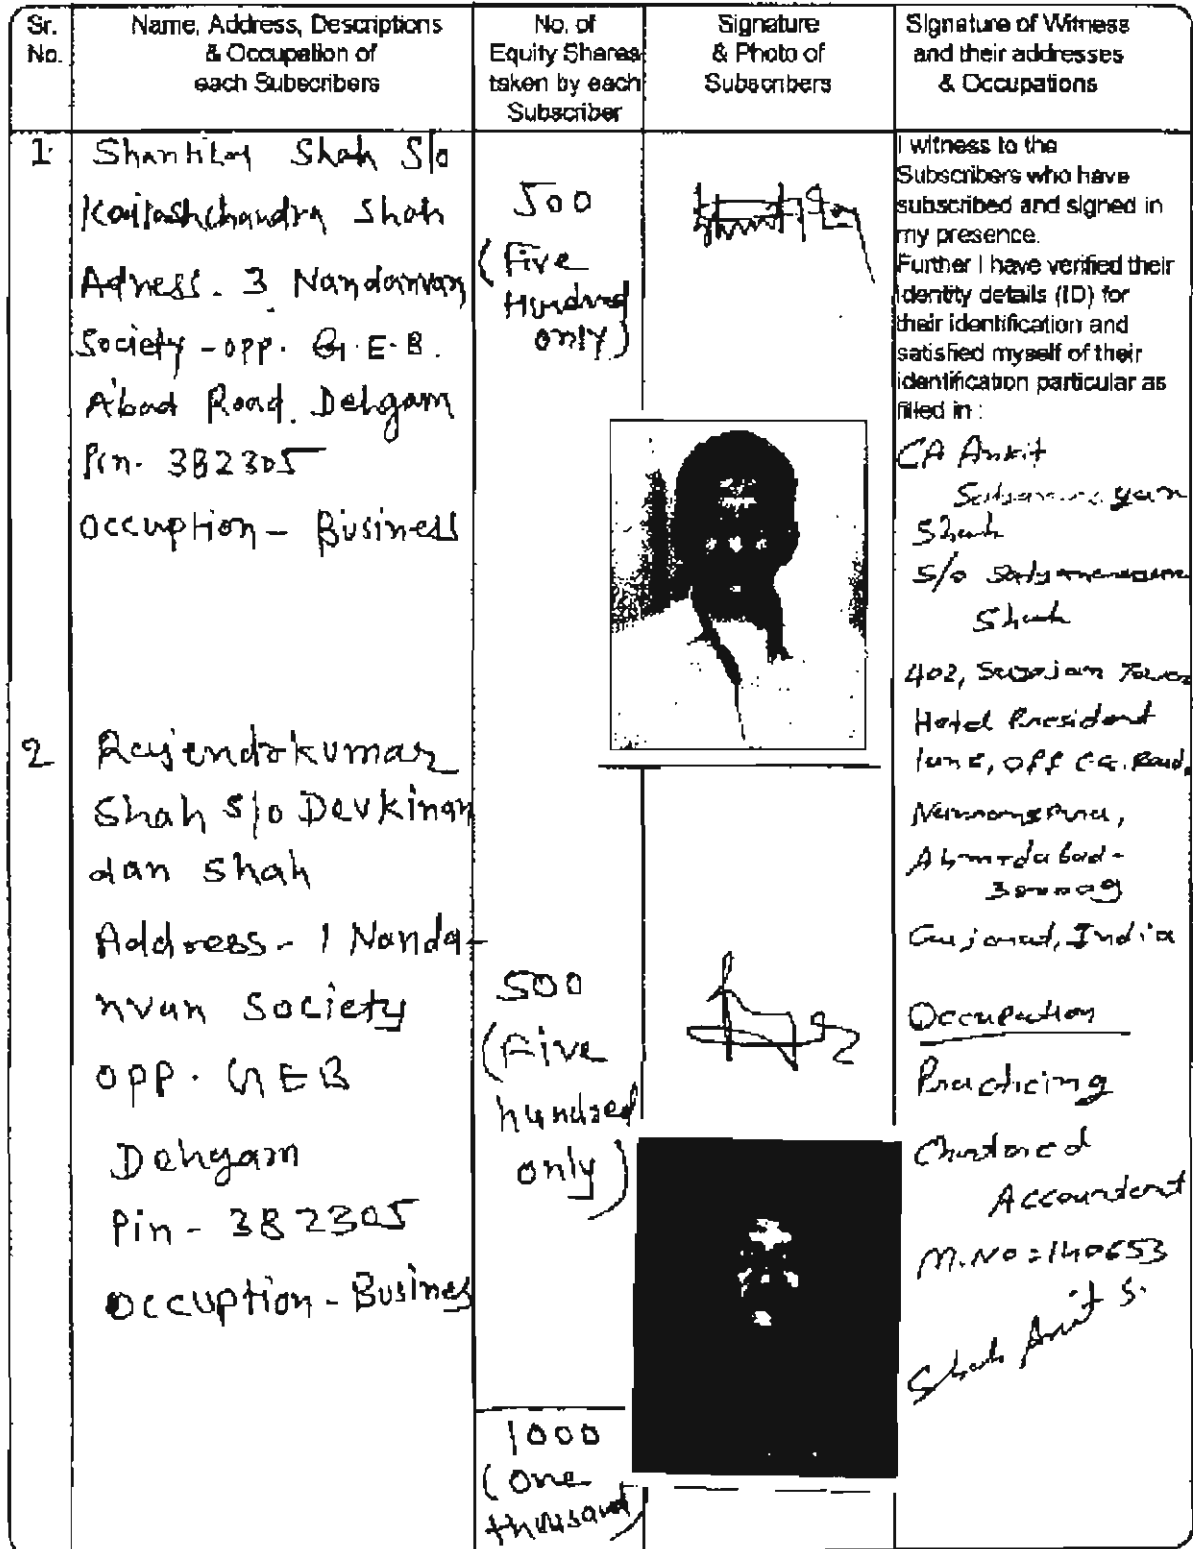 Sr.
No.
Name, Address, Descriptions
& Occupation of
each Subscribers
No. of
Equity Shares
taken by each
Subscriber
Signature
& Photo of
Subscribers
Signature of Witness
and their addresses
& Occupations
1
Shantilal Shah S/o
Kailashchandra Shah
Adress. 3 Nandanvan
Society - opp. G.E.B.
A'bad Road. Dehgam
Pin. 382305
occuption - Business
500
(Five
Hundred
only)
I witness to the
Subscribers who have
subscribed and signed in
my presence.
Further I have verified their
identity details (ID) for
their identification and
satisfied myself of their
identification particular as
filled in :
CA Ankit
Satyanarayan
Shah
S/o Satyanarayan
Shah
402, Tower
Hotel President
lane, off C.G. Road,
Navrangpura,
Ahmedabad-
Gujarat, India
Occupation
Practicing
Chartered
Accountant
M.No = 140653
Shah Ankit S.
2
Rajendrakumar
Shah S/o Devkinan
dan Shah
Address - 1 Nanda-
nvan Society
opp. GEB
Dehgam
Pin - 382305
occuption - Busines
500
(Five
hundred
only)
1000
(One
thousand)